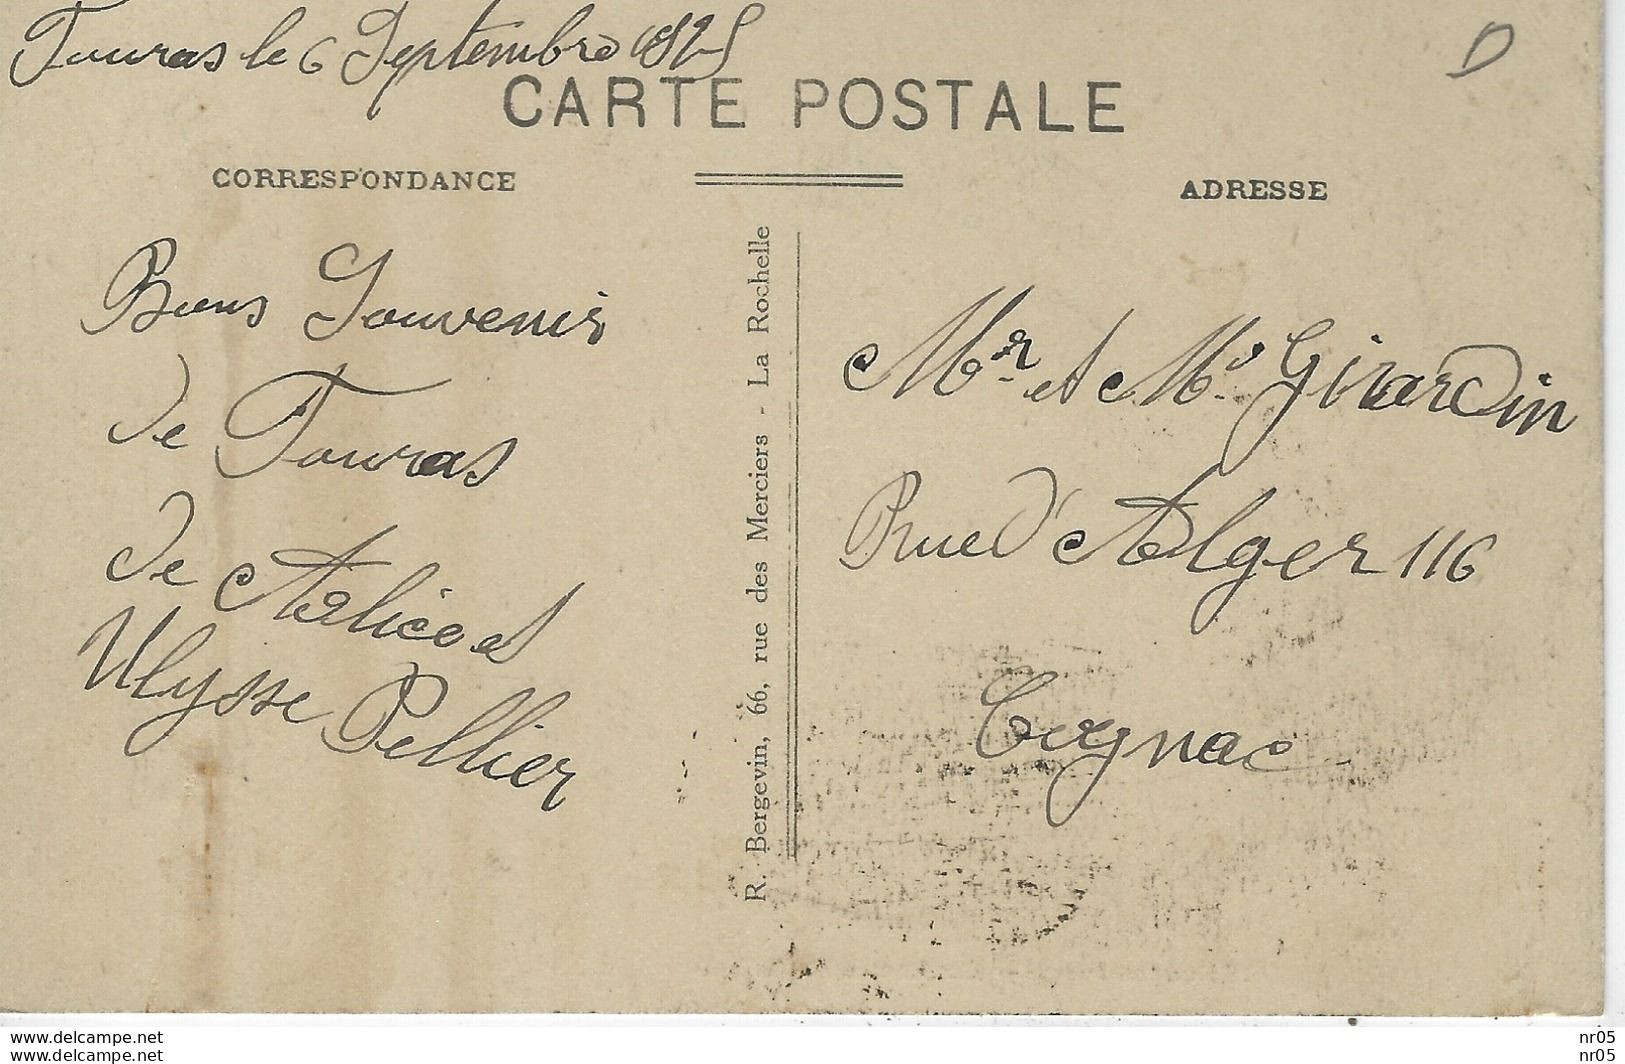 Fouras le 6 Septembre 1925
D
CARTE POSTALE
CORRESPONDANCE
ADRESSE
Bons Souvenir
de Fouras
de Alice et
Ulysse Pellier
R. Bergevin, 66, rue des Merciers - La Rochelle
Mr et Me Girardin
Rue d'Alger 116
Cognac
www.delcampe.net
www.delcampe.net
nr05
nr05